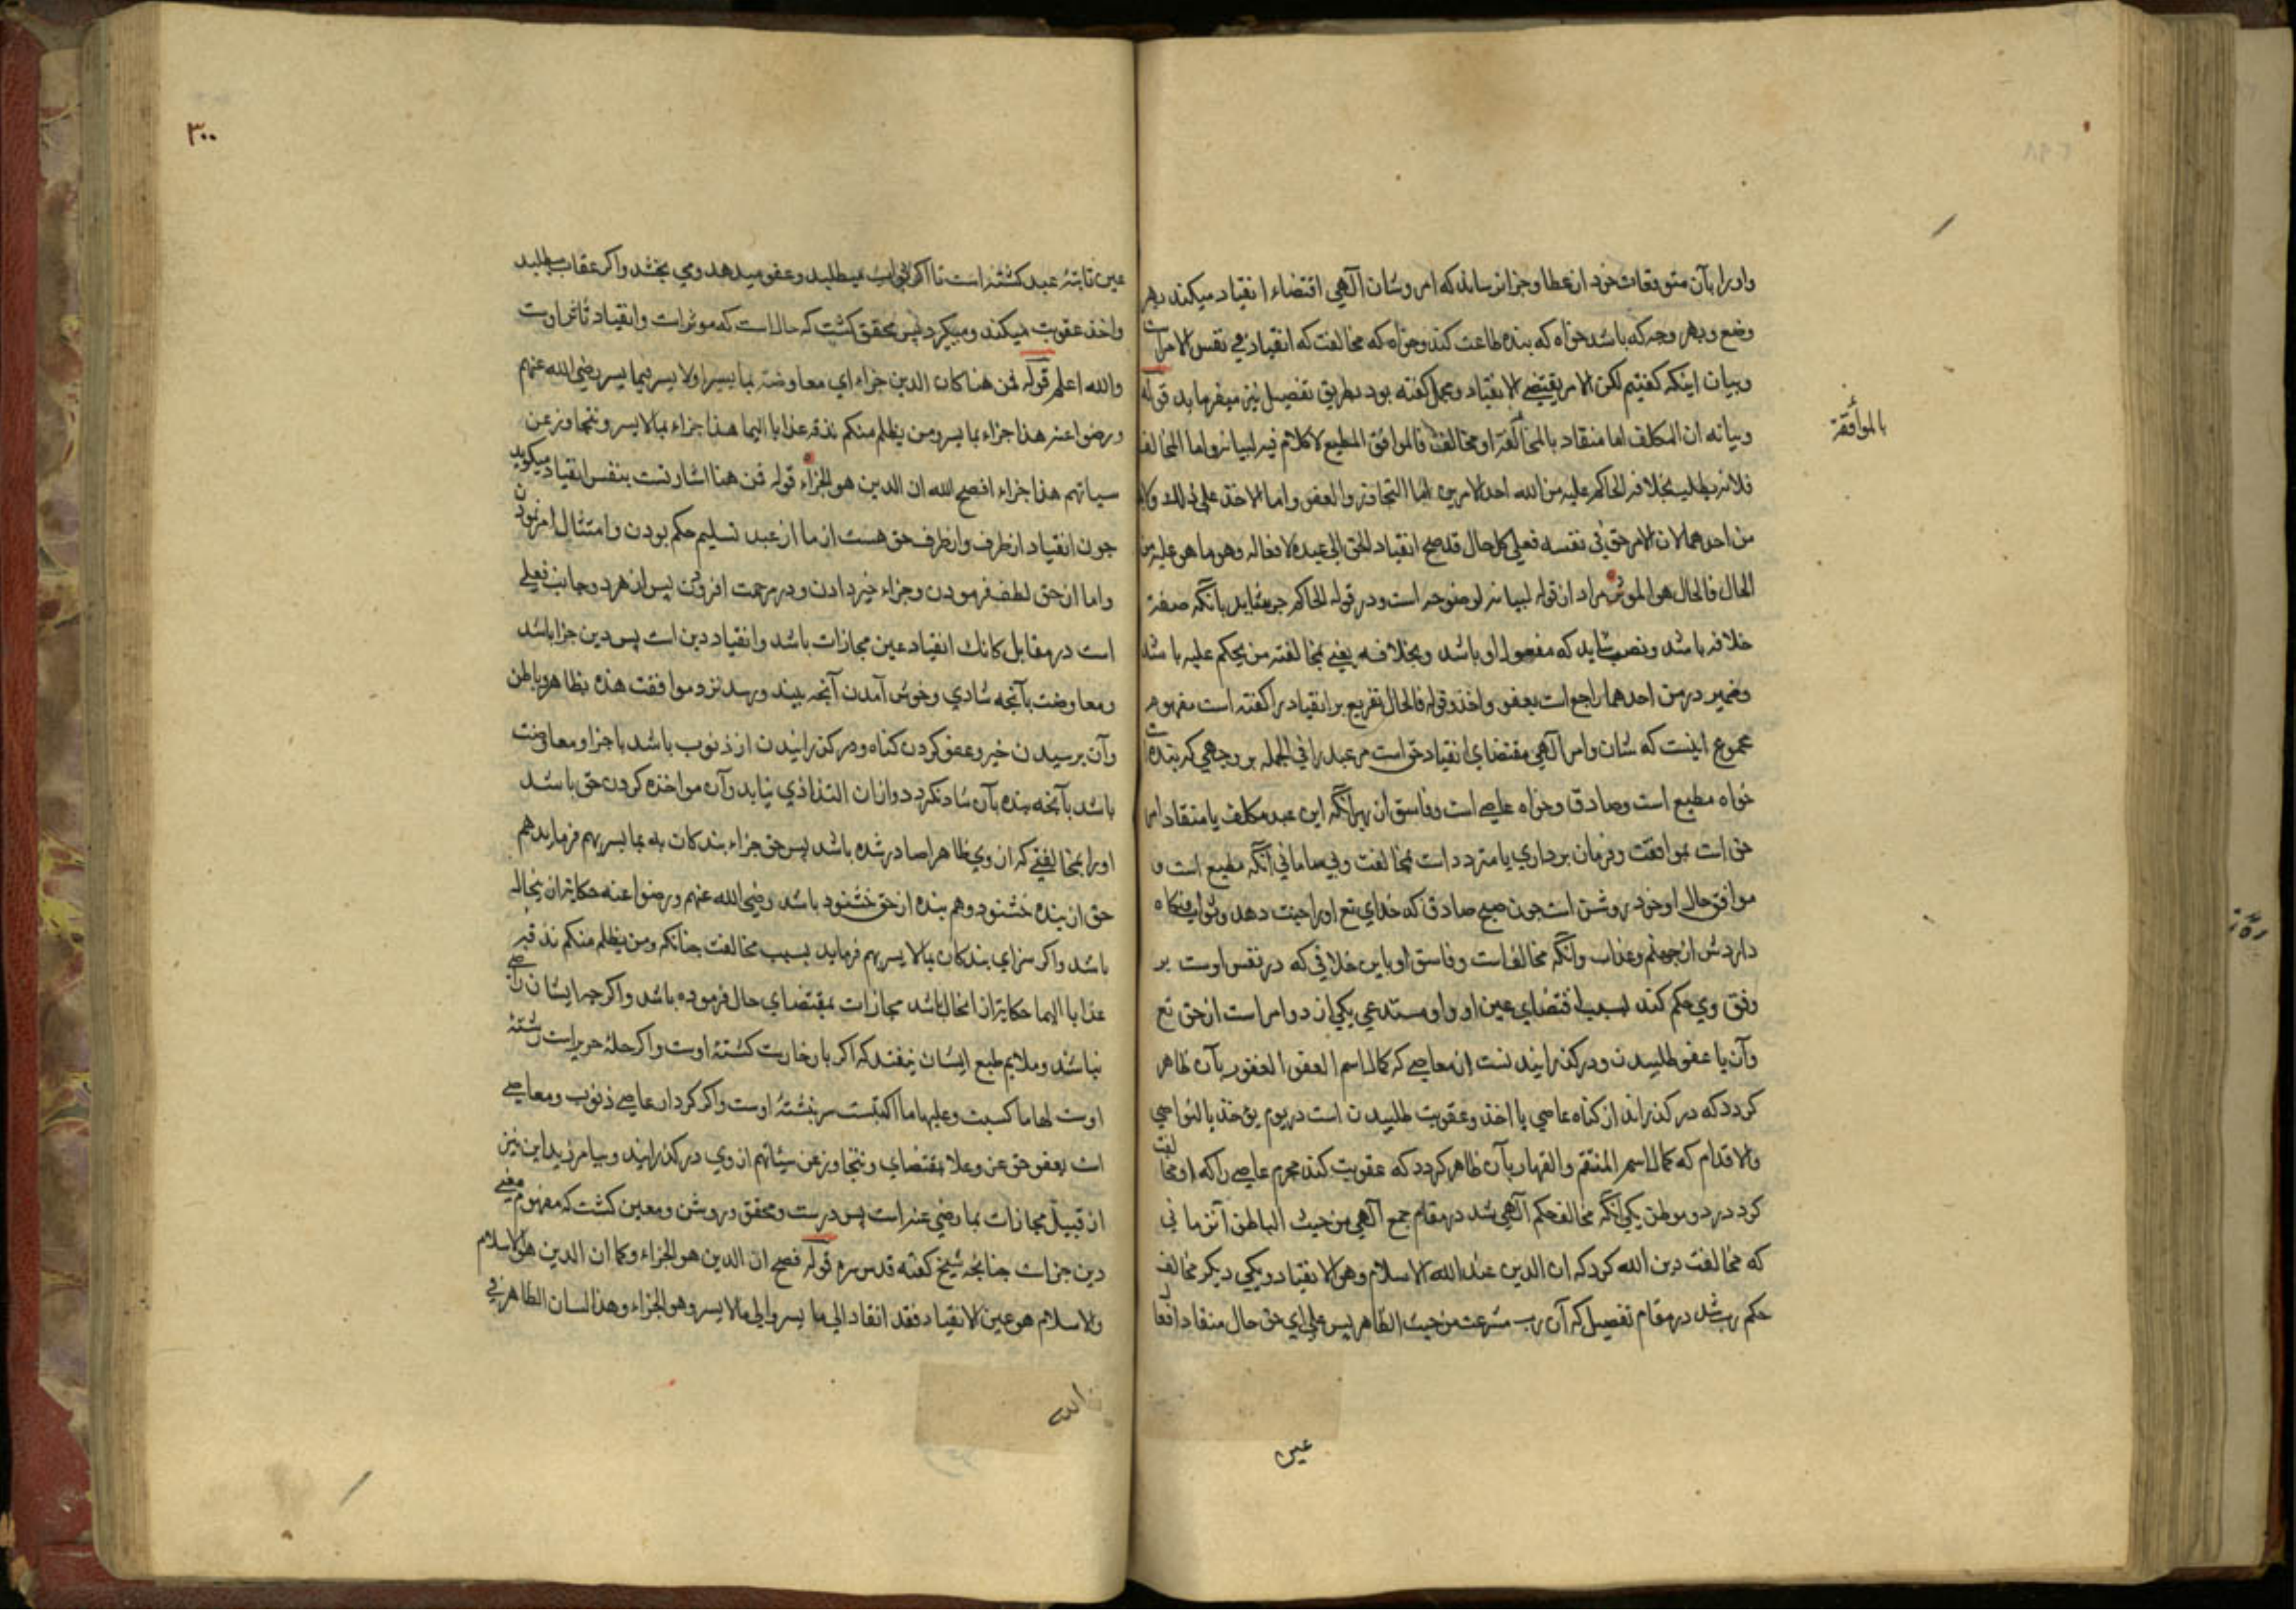 واورا بآن متوقعات خود از عطا وجزا نرساند که امر وشان آلهی اقتضاء انقیاد میکند بهر
وضع وبهر وجه که باشد خواه که بنده طاعت کند وخواه که مخالفت که انقیاد هی نفس الامر است
وبیان اینکه کفتیم لکن الامر یقتضی الانقیاد ومجمل کفته بود بطریق تفصیل نیز میفرماید قوله
وبیانه ان المکلف اما منقاد بالمخالفة او مخالف فالموافق المطیع لا کلام فیه لبیانه واما المخالف
بالموافقة
فلانه یطلب بخلافه الحاکم علیه من الله احد الامرین اما التجاوز والعفو واما الاخذ علی ذلک ولابد
من احدهما لان الامر حق فی نفسه فعلی کل حال قد صح انقیاد الحق الی عبده لافعاله وهو ما هو علیه من
الحال فالحال هو الموثر مراد از قوله لبیانه لوضوحه است ودر قوله الحاکم جر میشاید بانکه صفة
خلافه باشد ونصب شاید که مفعول او باشد وبخلافه یعنی بمخالفته من یحکم علیه باشد
وضمیر در من احدهما راجع است بعفو واخذ وقوله فالحال تفریع بر انقیاد را کفته است مفهوم
مجموع اینست که شان وامر آلهی مقتضای انقیاد حق است مر عبد را فی الجمله بر وجهی که بنده است
خواه مطیع است وصادق وخواه عاصی است وفاسق از بهر آنکه این عبد مکلف یا منقاد امر
حق است بموافقت وفرمان برداری یا متردد است بمخالفت وبی سامانی آنکه مطیع است و
موافق حال او خود روشن است چون صبح صادق که خدای تع اورا جنت دهد وثواب ونکاه
داردش از جهنم وعذاب وانکه مخالف است وفاسق او باین خلافی که در نفس اوست بر
وفق وی حکم کند بسبب اقتضای عین او واو مستدعی یکی از دو امر است از حق تع
وآن یا عفو طلبیدن ودرکذرانیدنست از معاصی که کمال اسم العفو الغفور بآن ظاهر
کردد که درکذراند از کناه عاصی یا اخذ وعقوبت طلبیدن است در یوم یؤخذ بالنواصی
والاقدام که کمال اسم المنتقم والقهار بآن ظاهر کردد که عقوبت کند مجرم عاصی را که او مخالفت
کرد در دو موطن یکی آنکه مخالف حکم آلهی شد در مقام جمع آلهی من حیث الباطن آنزمانی
که مخالفت دین الله کرد که ان الدین عند الله الاسلام وهو الانقیاد ویکی دیکر مخالف
حکم رب شد در مقام تفصیل که آن رب مشرعست من حیث الظاهر پس علی ای حال حق منقاد افعال
عین
٣٠٠
عین ثابتهٔ عبد کشته است تا اکر ثواب میطلبد وعفو میدهد ومی بخشد واکر عقاب میطلبد
واخذ عقوبت میکند ومیکیرد پس محقق کشت که حال است که موثر است وانقیاد تاثر اوست
والله اعلم قوله فمن هنا کان الدین جزاء ای معاوضة بما یسر او لا یسر فبما یسر رضی الله عنهم
ورضوا عنه هذا جزاء بما یسر ومن یظلم منکم نذقه عذابا الیما هذا جزاء بما لا یسر ونتجاوز عن
سیاتهم هذا جزاء افصح الله ان الدین هو الجزاء قوله فمن هنا اشارتست بنفس انقیاد میکوید
چون انقیاد ازطرف وازطرف حق هست از ما از عبد تسلیم حکم بودن وامتثال امر نمودن
واما از حق لطف فرمودن وجزاء خیر دادن ودر رحمت افزودن پس از هر دو جانب فعلی
است در مقابل کانک انقیاد عین مجازات باشد وانقیاد دین است پس دین جزا باشد
ومعاوضت بآنچه شادی وخوش آمدن آنچه بیند ورسد نزد موافقت هذه بظاهر وباطن
وآن برسیدن خیر وعفو کردن کناه ودرکذرانیدن از ذنوب باشد یا جزا ومعاوضت
باشد بآنچه بنده بآن شاد نکردد وازان التذاذی نیابد وآن مواخذه کردن حق باشد
اورا بمخالفتی که از وی ظاهرا صادر شده باشد پس حق جزاء بندکان به بما یسر بهم فرماید هم
حق از بنده خشنود وهم بنده از حق خشنود باشد رضی الله عنهم ورضوا عنه حکایة از نیحاله
باشد واکر سزای بندکان بما لا یسر بهم فرماید بسبب مخالفت چنانکه ومن یظلم منکم نذقه
عذابا الیما حکایة ازان حال باشد مجازات بمقتضای حال فرموده باشد واکرچه ایشان راضی
نباشند وملایم طبع ایشان نیفتد که اکر بار خارست کشتهٔ اوست واکر حلهٔ حریراست رشتهٔ
اوست لها ما کسبت وعلیها ما اکتسبت سر نبشتهٔ اوست واکر کردار عاصی ذنوب ومعاصی
است بعفو حق عز وعلا بمقتضای ونتجاوز عن سیئاتهم از وی درکذرانید وبیامرزید این نیز
از قبیل مجازات بما رضی عنه است پس درست ومحقق وروشن ومعین کشت که مفهوم معنی
دین جزاست چنانچه شیخ کفته قدس سره قوله فصح ان الدین هو الجزاء وکما ان الدین هو الاسلام
والاسلام هو عین الانقیاد فقد انقاد الی ما یسر والی ما لا یسر وهو الجزاء وهذا لسان الظاهر فی